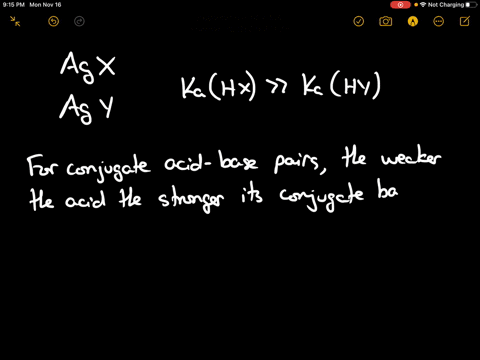 9:15 PM Mon Nov 16
Not Charging
AgX
AgY
Ka(HX) >> Ka(HY)
For conjugate acid-base pairs, the weaker
the acid the stronger its conjugate ba